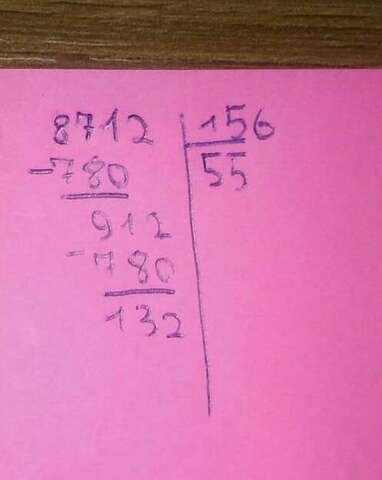 8712 156
-780 55
912
-780
132